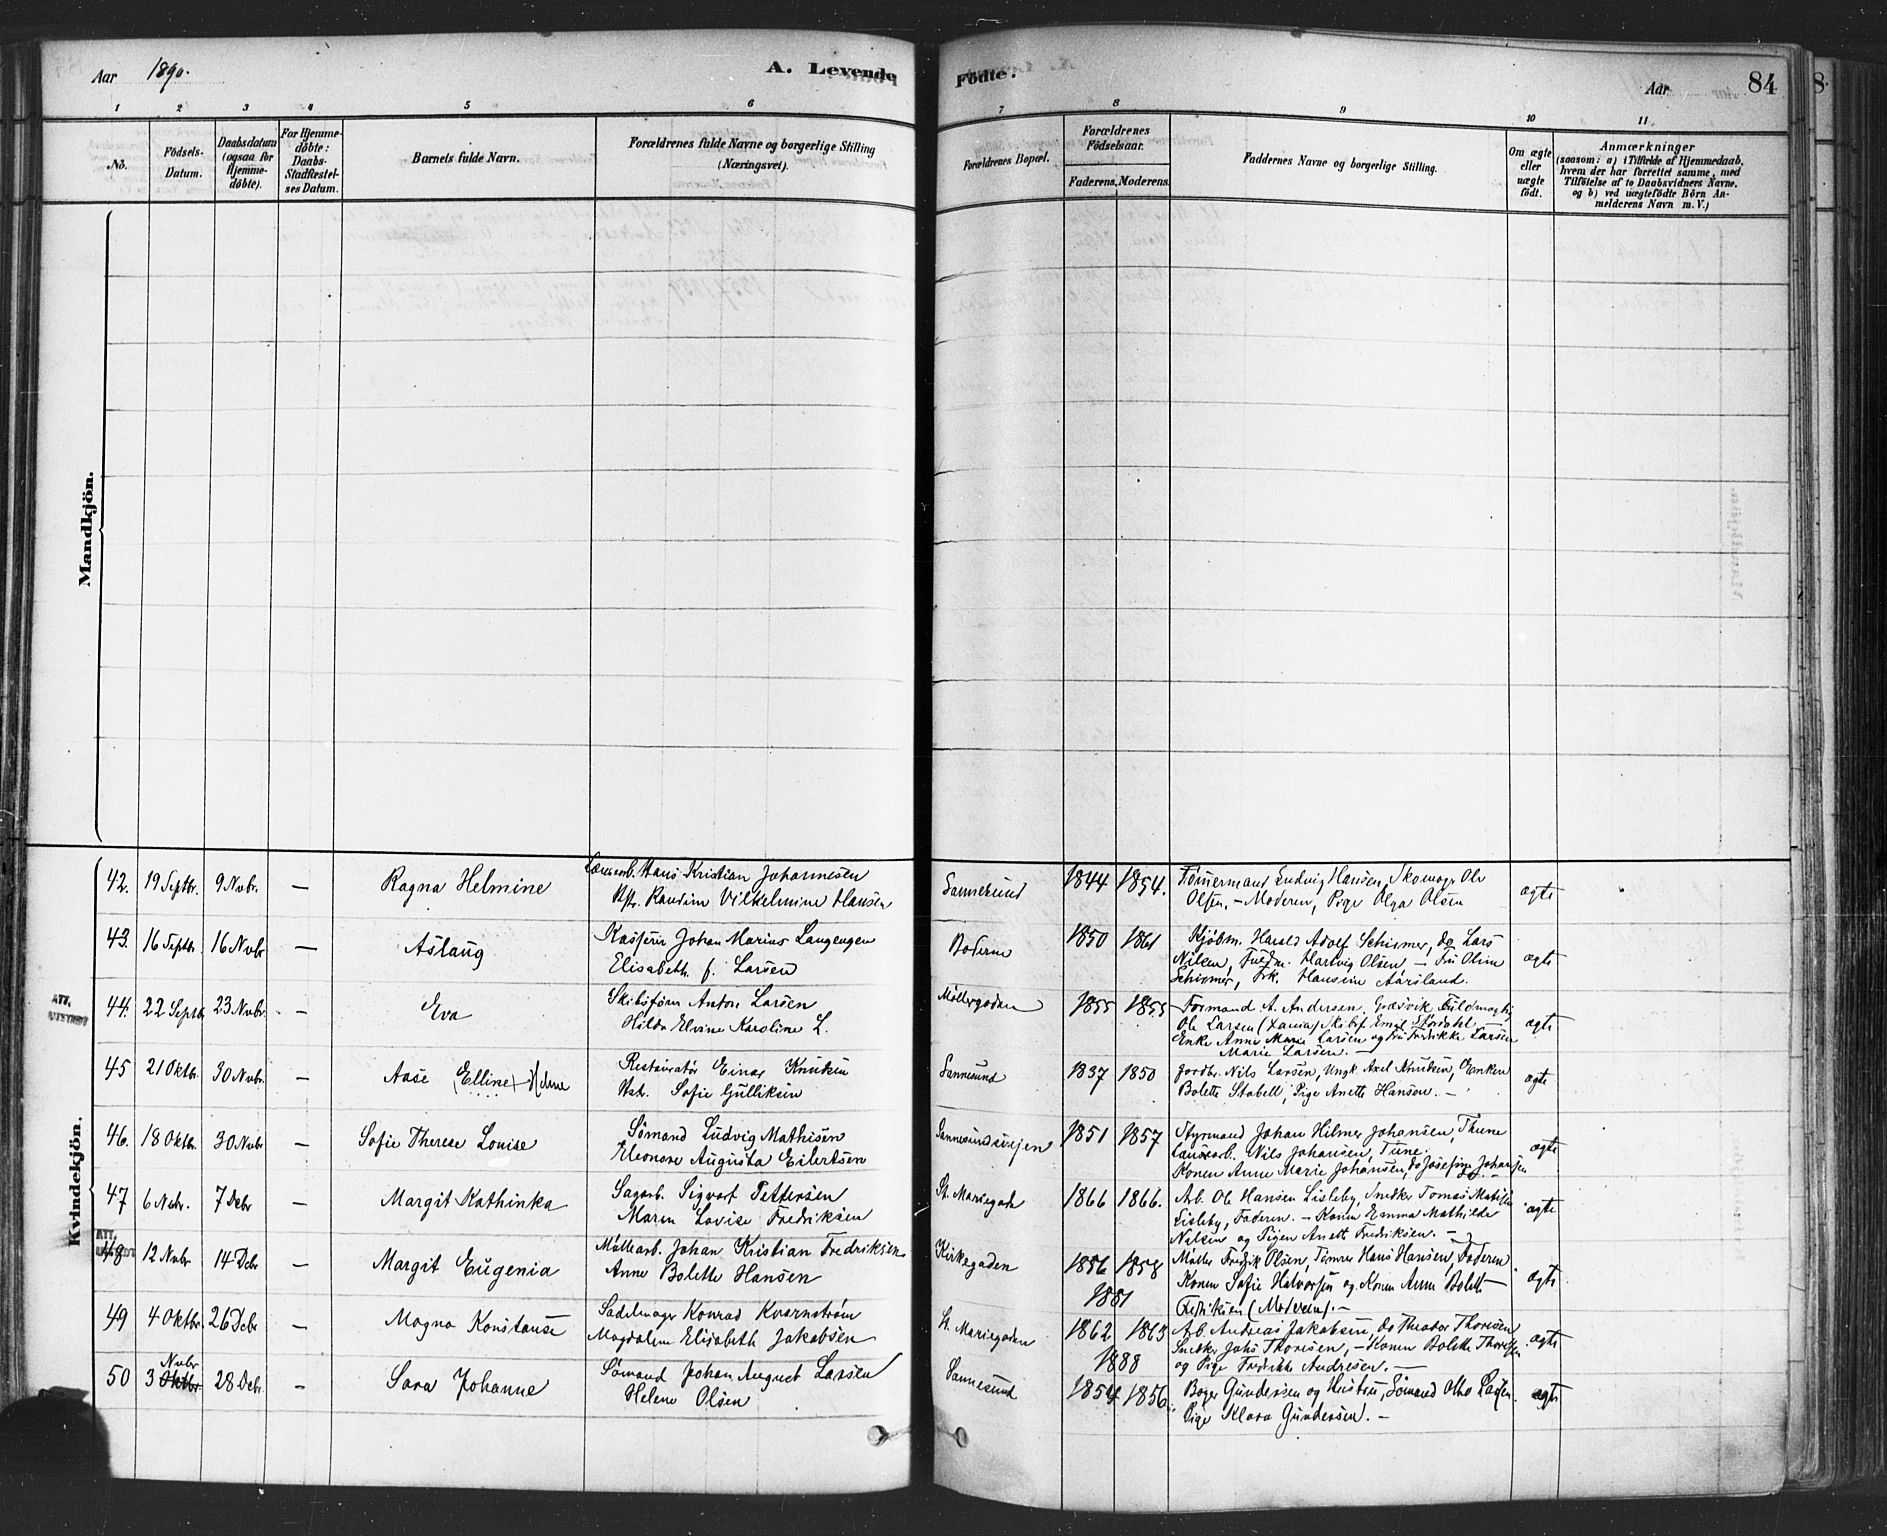 Aar 1890. A. Levende Födte. Aar 84
1 2 3 4 5 6 7 8 9 10 11
No.
Födsels-
Datum.
Daabsdatum
(ogsaa for
Hjemme-
döbte).
For Hjemme-
döbte:
Daabs-
Stadfæstel-
ses Datum.
Barnets fulde Navn.
Forældrenes fulde Navne og borgerlige Stilling
(Næringsvei).
Forældrenes Bopæl.
Forældrenes
Födselsaar.
Faderens. Moderens.
Faddernes Navne og borgerlige Stilling.
Om ægte
eller
uægte
födt.
Anmærkninger
(saasom: a) i Tilfælde af Hjemmedaab,
hvem der har forrettet samme, med
Tilföielse af to Daabsvidners Navne,
og b) ved uægtefödte Börn An-
melderens Navn m. V.)
Mandkjön.
Kvindekjön.
42. 19 Septbr. 9 Nvbr. — Ragna Helmine
Hans Kristian Johannesen
Hstr. Randine Vilhelmine Hansen
Sannesund 1844 1854.
Tömmermand Ludvig Hansen, Skomager Ole
Olsen. – Moderen, Pige Olga Olsen
ægte
43. 16 Septbr. 16 Nvbr. — Aslaug
Kasserer Johan Marius Langengen
Elisabeth f. Larsen
1850 1861
Kjöbm. Harald Adolf Schirmer, do Lars
Nilsen, Hartvig Olsen – Fru Oline
Schirmer, Frk. Hansine Aarsland.
ægte
ATT.
UTSTEDT
44. 22 Septbr. 23 Nvbr. — Eva
Skibsförer Anton Larsen
Hilda Elvine Karoline L.
Möllergaden 1855 1855
Formand A. Andersen, Græsvik, Fuldmægtig
Ole Larsen Skibsf. Emil
Enke Anne Marie Larsen og Fru Fredrikke Larsen
Marie Larsen. –
ægte
45 21 Oktbr. 30 Nvbr. — Aase (Elline) Helene
Restauratör Einar Knudsen
Hstr. Sofie Gulliksen
Sannesund 1837 1850
Jordbr. Nils Larsen, Ungk. Axel Knudsen, Enken
Bolette Stabell, Pige Anette Hansen. –
ægte
46. 18 Oktbr. 30 Nvbr. — Sofie Therese Louise
Sömand Ludvig Mathisen
Eleonore Augusta Eilertsen
1851 1857
Styrmand Johan Hilmer Johansen, Thune
Nils Johansen, Tune.
Konen Anne Marie Johansen, do Josefine Johansen
ægte
47 6 Nvbr. 7 Debr — Margit Kathinka
Sagarb. Sigvart Pettersen
Maren Lovise Fredriksen
St. Mariegade 1866 1866.
Arb. Ole Hansen Lisleby, Snedker Tomas Mathisen
Lisleby, Faderen. – Konen Emma Mathilde
Nilsen og Pigen Anett Fredriksen. –
ægte
ATT.
UTSTEDT
48 12 Nvbr 14 Debr — Margit Eugenia
Möllearb. Johan Kristian Fredriksen
Anne Bolette Hansen
Kirkegaden 1856 1858
1881
Möller Fredrik Olsen, Tömrer Hans Hansen, Faderen
Konen Sofie Halvorsen og Konen Anne Bolette
Fredriksen (Moderen). –
ægte
49 4 Oktbr. 26 Debr — Magna Konstanse
Sadelmager Konrad Kvarnström
Magdalene Elisabeth Jakobsen
St. Mariegaden 1862 1863
1888
Arb. Andreas Jakobsen, do Theodor Thoresen
Snedker Johs Thoresen, – Konen Bolette Thoresen
og Pige Fredrikke Andresen. —
ægte
50 3 Nvbr Oktbr. 28 Debr. – Sara Johanne
Sömand Johan August Larsen
Helene Olsen
Sannesund 1854 1856
Bager Gundersen og Hustru, Sömand Otto Larsen
Pige Klara Gundersen. –
ægte